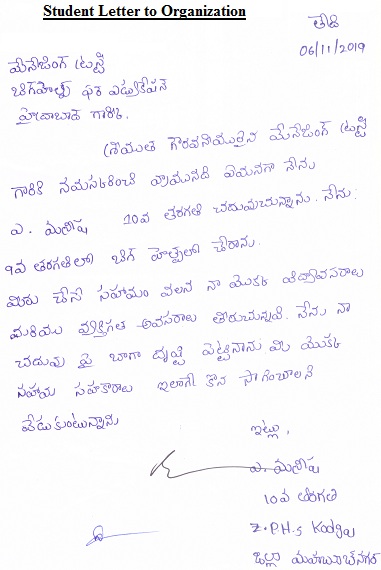 Student Letter to Organization
తేది
06/11/2019
మేనేజింగ్ ట్రస్టీ
బిగ్‌హెల్ప్ ఫర్ ఎడ్యుకేషన్
హైదరాబాద్ గారికి.
శ్రీయుత గౌరవనీయులైన మేనేజింగ్ ట్రస్టీ
గారికి నమస్కరించి వ్రాయునది ఏమనగా నేను
ఎ. మనీషా 10వ తరగతి చదువుచున్నాను. నేను
9వ తరగతిలో బిగ్ హెల్ప్‌లో చేరాను.
మీరు చేసే సహాయం వలన నా యొక్క విద్యావసరాలు
మరియు వ్యక్తిగత అవసరాలు తీరుచున్నవి. నేను నా
చదువు పై బాగా దృష్టి పెట్టినాను మీ యొక్క
సహాయ సహకారాలు ఇలాగే కొన సాగించాలని
వేడుకుంటున్నాను
ఇట్లు,
ఎ. మనీషా
10వ తరగతి
Z.P.H.S Kodgal
జిల్లా మహబూబ్‌నగర్